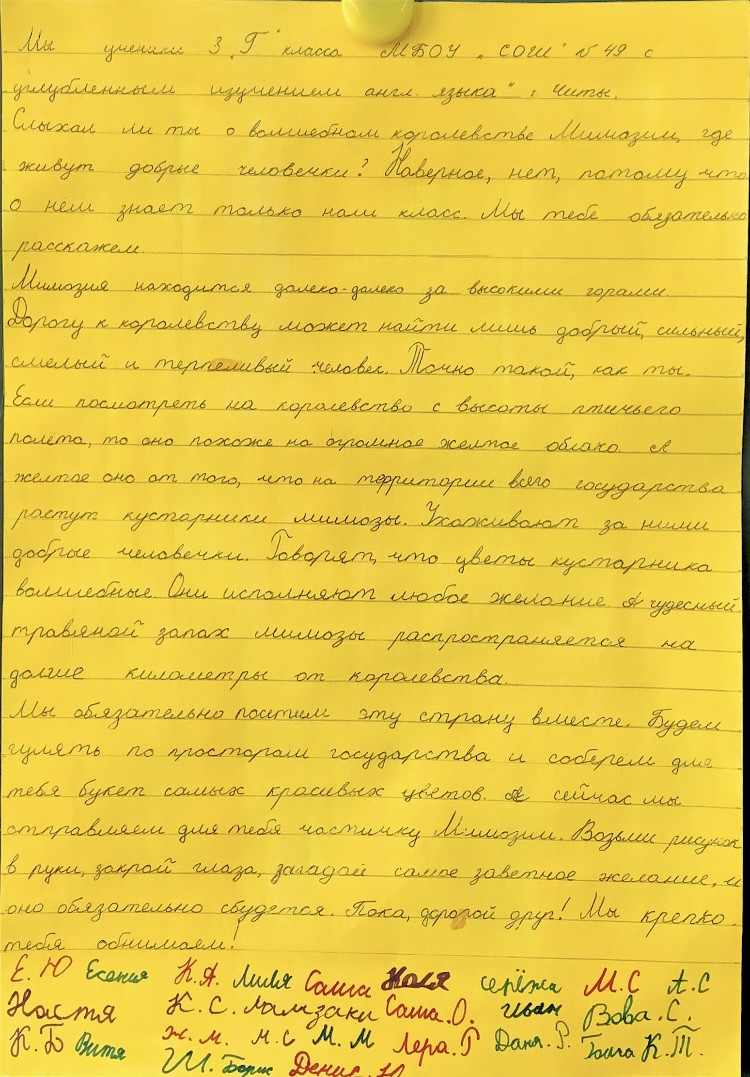 Мы ученики 3 „Г" класса МБОУ „СОШ №49 с
углубленным изучением англ. языка" г. Читы.
Слыхал ли ты о волшебном королевстве Мимозии, где
живут добрые человечки? Наверное, нет, потому что
о нём знает только наш класс. Мы тебе обязательно
расскажем.
Мимозия находится далеко-далеко за высокими горами.
Дорогу к королевству может найти лишь добрый, сильный,
смелый и терпеливый человек. Точно такой, как ты.
Если посмотреть на королевство с высоты птичьего
полёта, то оно похоже на огромное желтое облако. А
желтое оно от того, что на территории всего государства
растут кустарники мимозы. Ухаживают за ними
добрые человечки. Говорят, что цветы кустарника
волшебные. Они исполняют любое желание. А чудесный
травяной запах мимозы распространяется на
долгие километры от королевства.
Мы обязательно посетим эту страну вместе. Будем
гулять по просторам государства и соберём для
тебя букет самых красивых цветов. А сейчас мы
отправляем для тебя частичку Мимозии. Возьми рисунок
в руки, закрой глаза, загадай самое заветное желание, и
оно обязательно сбудется. Пока, дорогой друг! Мы крепко
тебя обнимаем!
Е. Ю Есения К.А. Лиля Саша Коля серёжа М.С А.С
Настя К.С. Саша.О. иван Вова.С.
К.Б Витя Ж.М. М.С М.М Лера.Г Даня.Р. К.Т.
Ш. Борис Денис.Ю